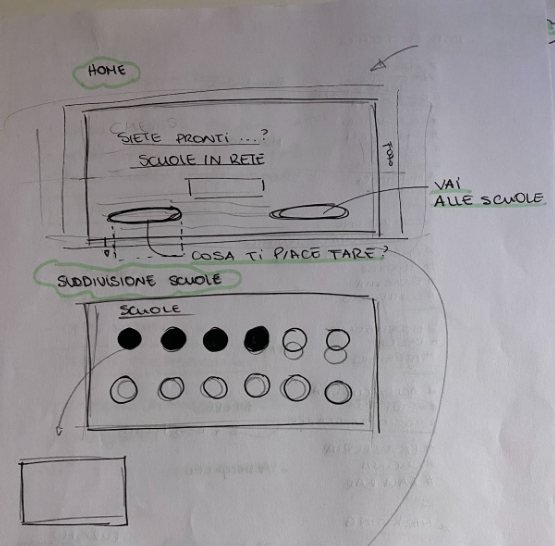 HOME
SIETE PRONTI ...?
SCUOLE IN RETE
FOTO
VAI
ALLE SCUOLE
COSA TI PIACE FARE?
SUDDIVISIONE SCUOLE
SCUOLE